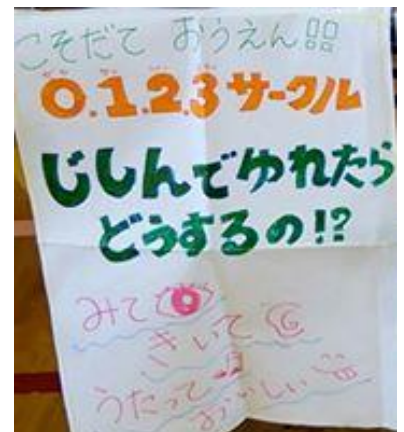 こそだて おうえん!!
0.1.2.3サークル
じしんでゆれたら
どうするの!?
みて
きいて
うたって
おいしい